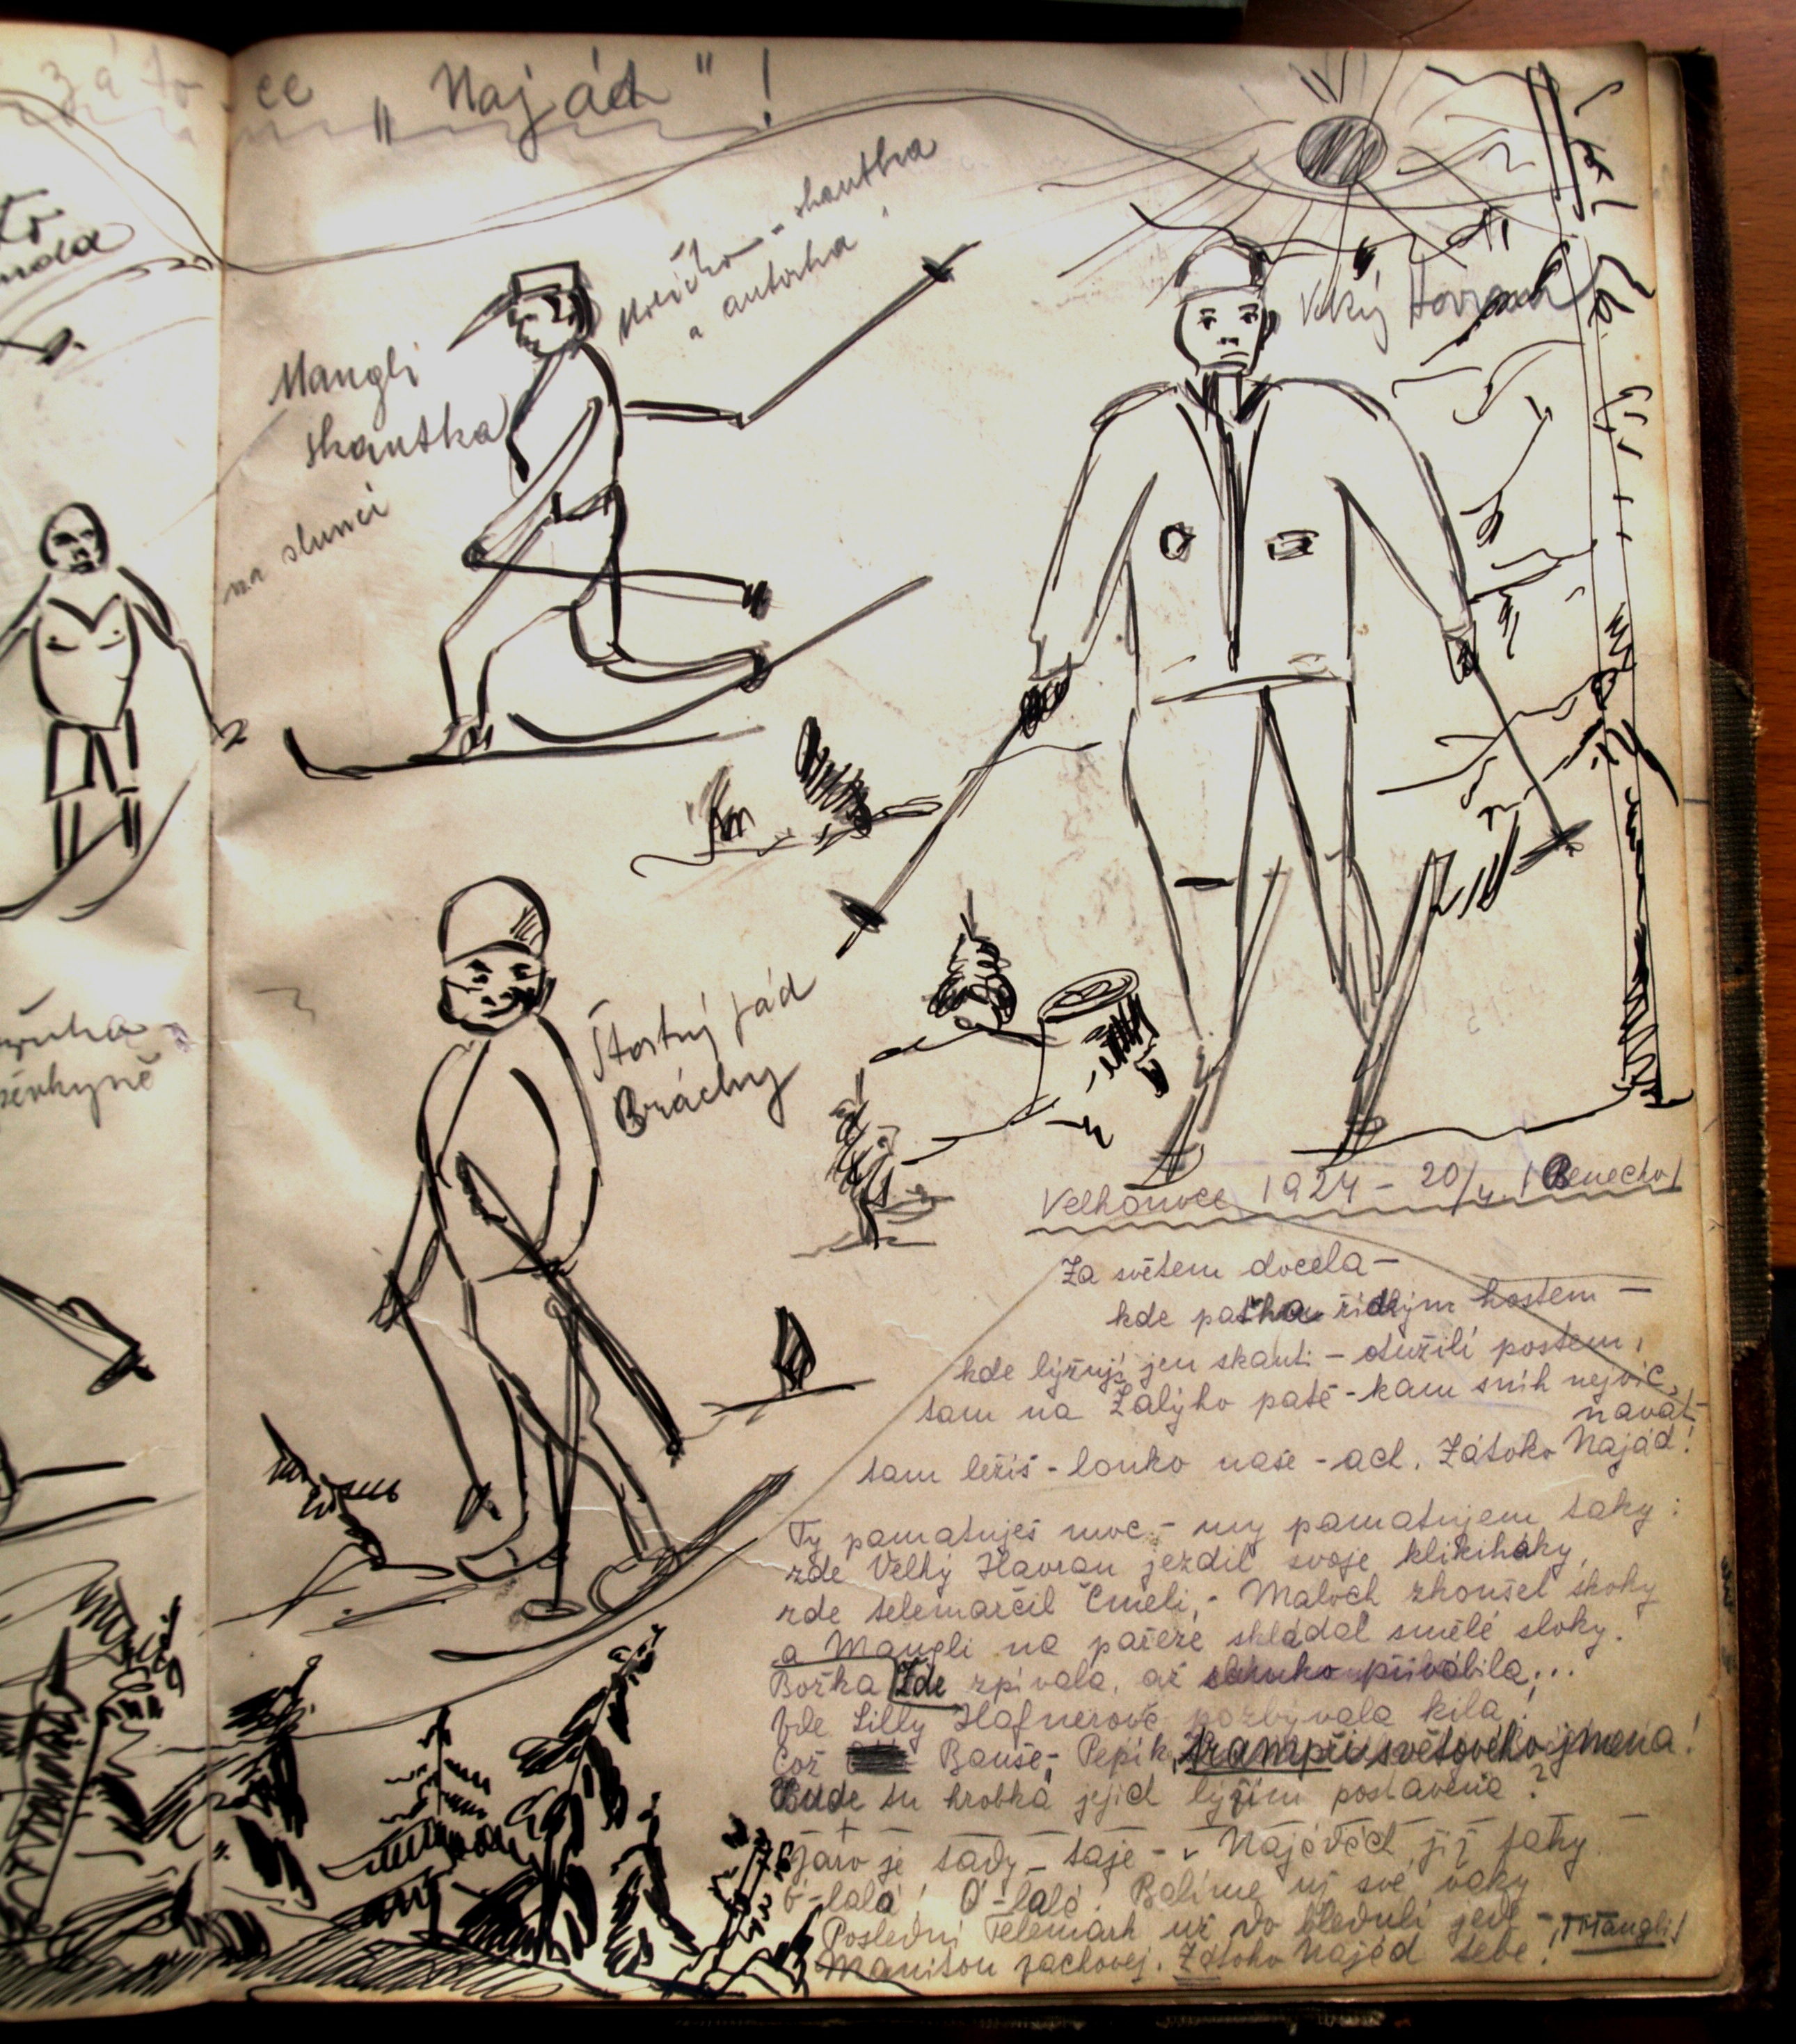 "Najád"!
Mangli
skautka
na slunci
skautka
a autorka
Velký Havran
Šťastný jád
Bráchy
Velkonoce 1924 - 20/4.
Za světem docela -
kde pacha řídkým hostem -
kde lyžují jen skauti - otužilí postem,
tam na Žalýho patě - kam sníh nejvíc
navát
tam ležíš - louko naše - ach. Zátoko Najád!
Ty pamatuješ moc - my pamatujem taky:
zde Velký Havran jezdil svoje klikiháky,
zde telemarčil Čmeli, - Maloch zkoušel skoky
a Mangli na pařeze skládal smělé sloky.
Božka zde zpívala, až slunko přivábila...
Zde Lilly Hafnerově pozbývala kila!
Což Bauše, - Pepik, trampři světového jmena!
Bude tu hrobka jejich lyžím postavena?
Jaro je tady - taje - v Najádách jíž
O-lalá! O-lalá! Balíme už své vaky
Poslední Telemark už do
Manitou zachovej. Zátoko Najád tebe! /Mangli/